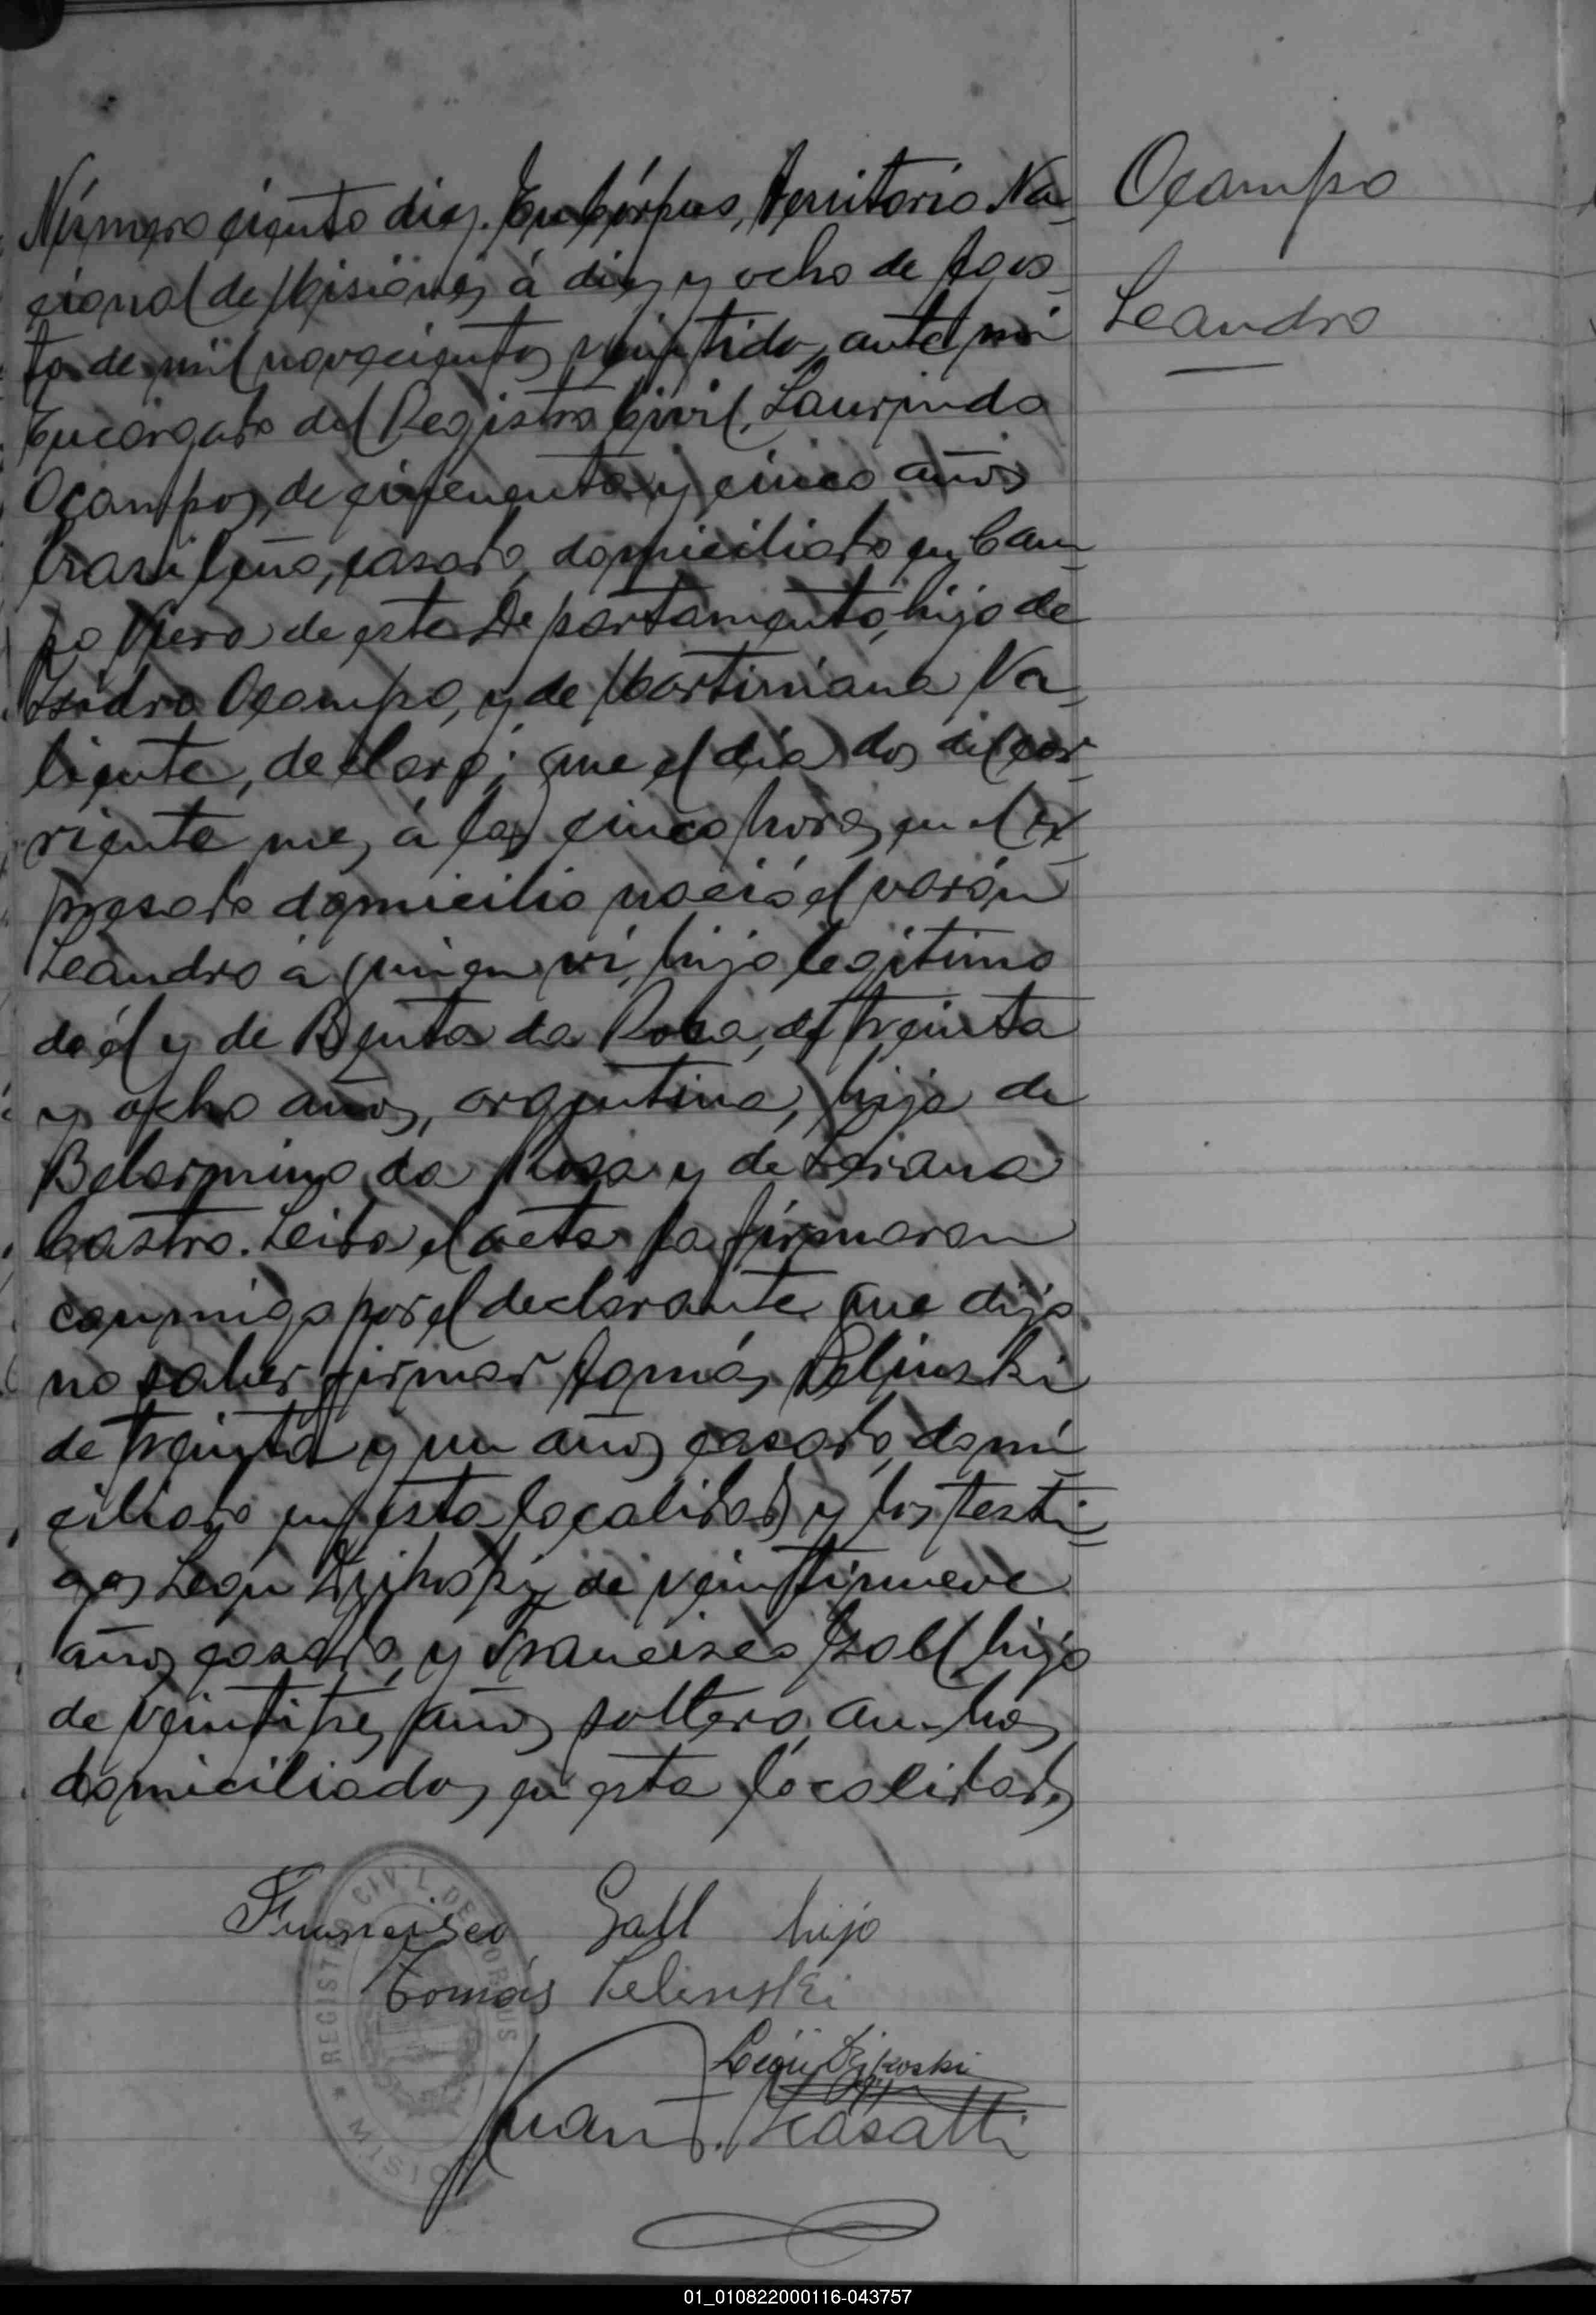 Número ciento diez. En Córpus, Territorio Na-
cional de Misiones á diez y ocho de Agos-
to de mil novecientos veintidos, ante mi
Encargado del Registro Civil, Laurindo
Ocampos, de cincuenta y cinco años
brasileño, casado, domiciliado en Cam-
po Viera de este Departamento, hijo de
Isidro Ocampo, y de Martiniana Va-
liente, declaró: que el día dos del cor-
riente mes, á las cinco horas, en el ex-
presado domicilio nació el varón
Leandro á quien ví, hijo legítimo
de él y de Benta da Rosa, de treinta
y ocho años, argentina, hija de
Belarmino da Rosa y de
Castro. Leida el acta la firmaron
conmigo por el declarante que dijo
no saber firmar Tomás Zelinski
de treinta y un años casado, domi-
ciliado en esta localidad y los testi-
gos León de veintinueve
años, casado, y Francisco Gall hijo
de veintitres años, soltero, ambos
domiciliados en esta localidad.
Ocampo
Leandro
Francisco Gall hijo
Tomás Zelinski
León
Juan
REGISTRO CIVIL DE CORPUS
MISIONES
01_010822000116-043757